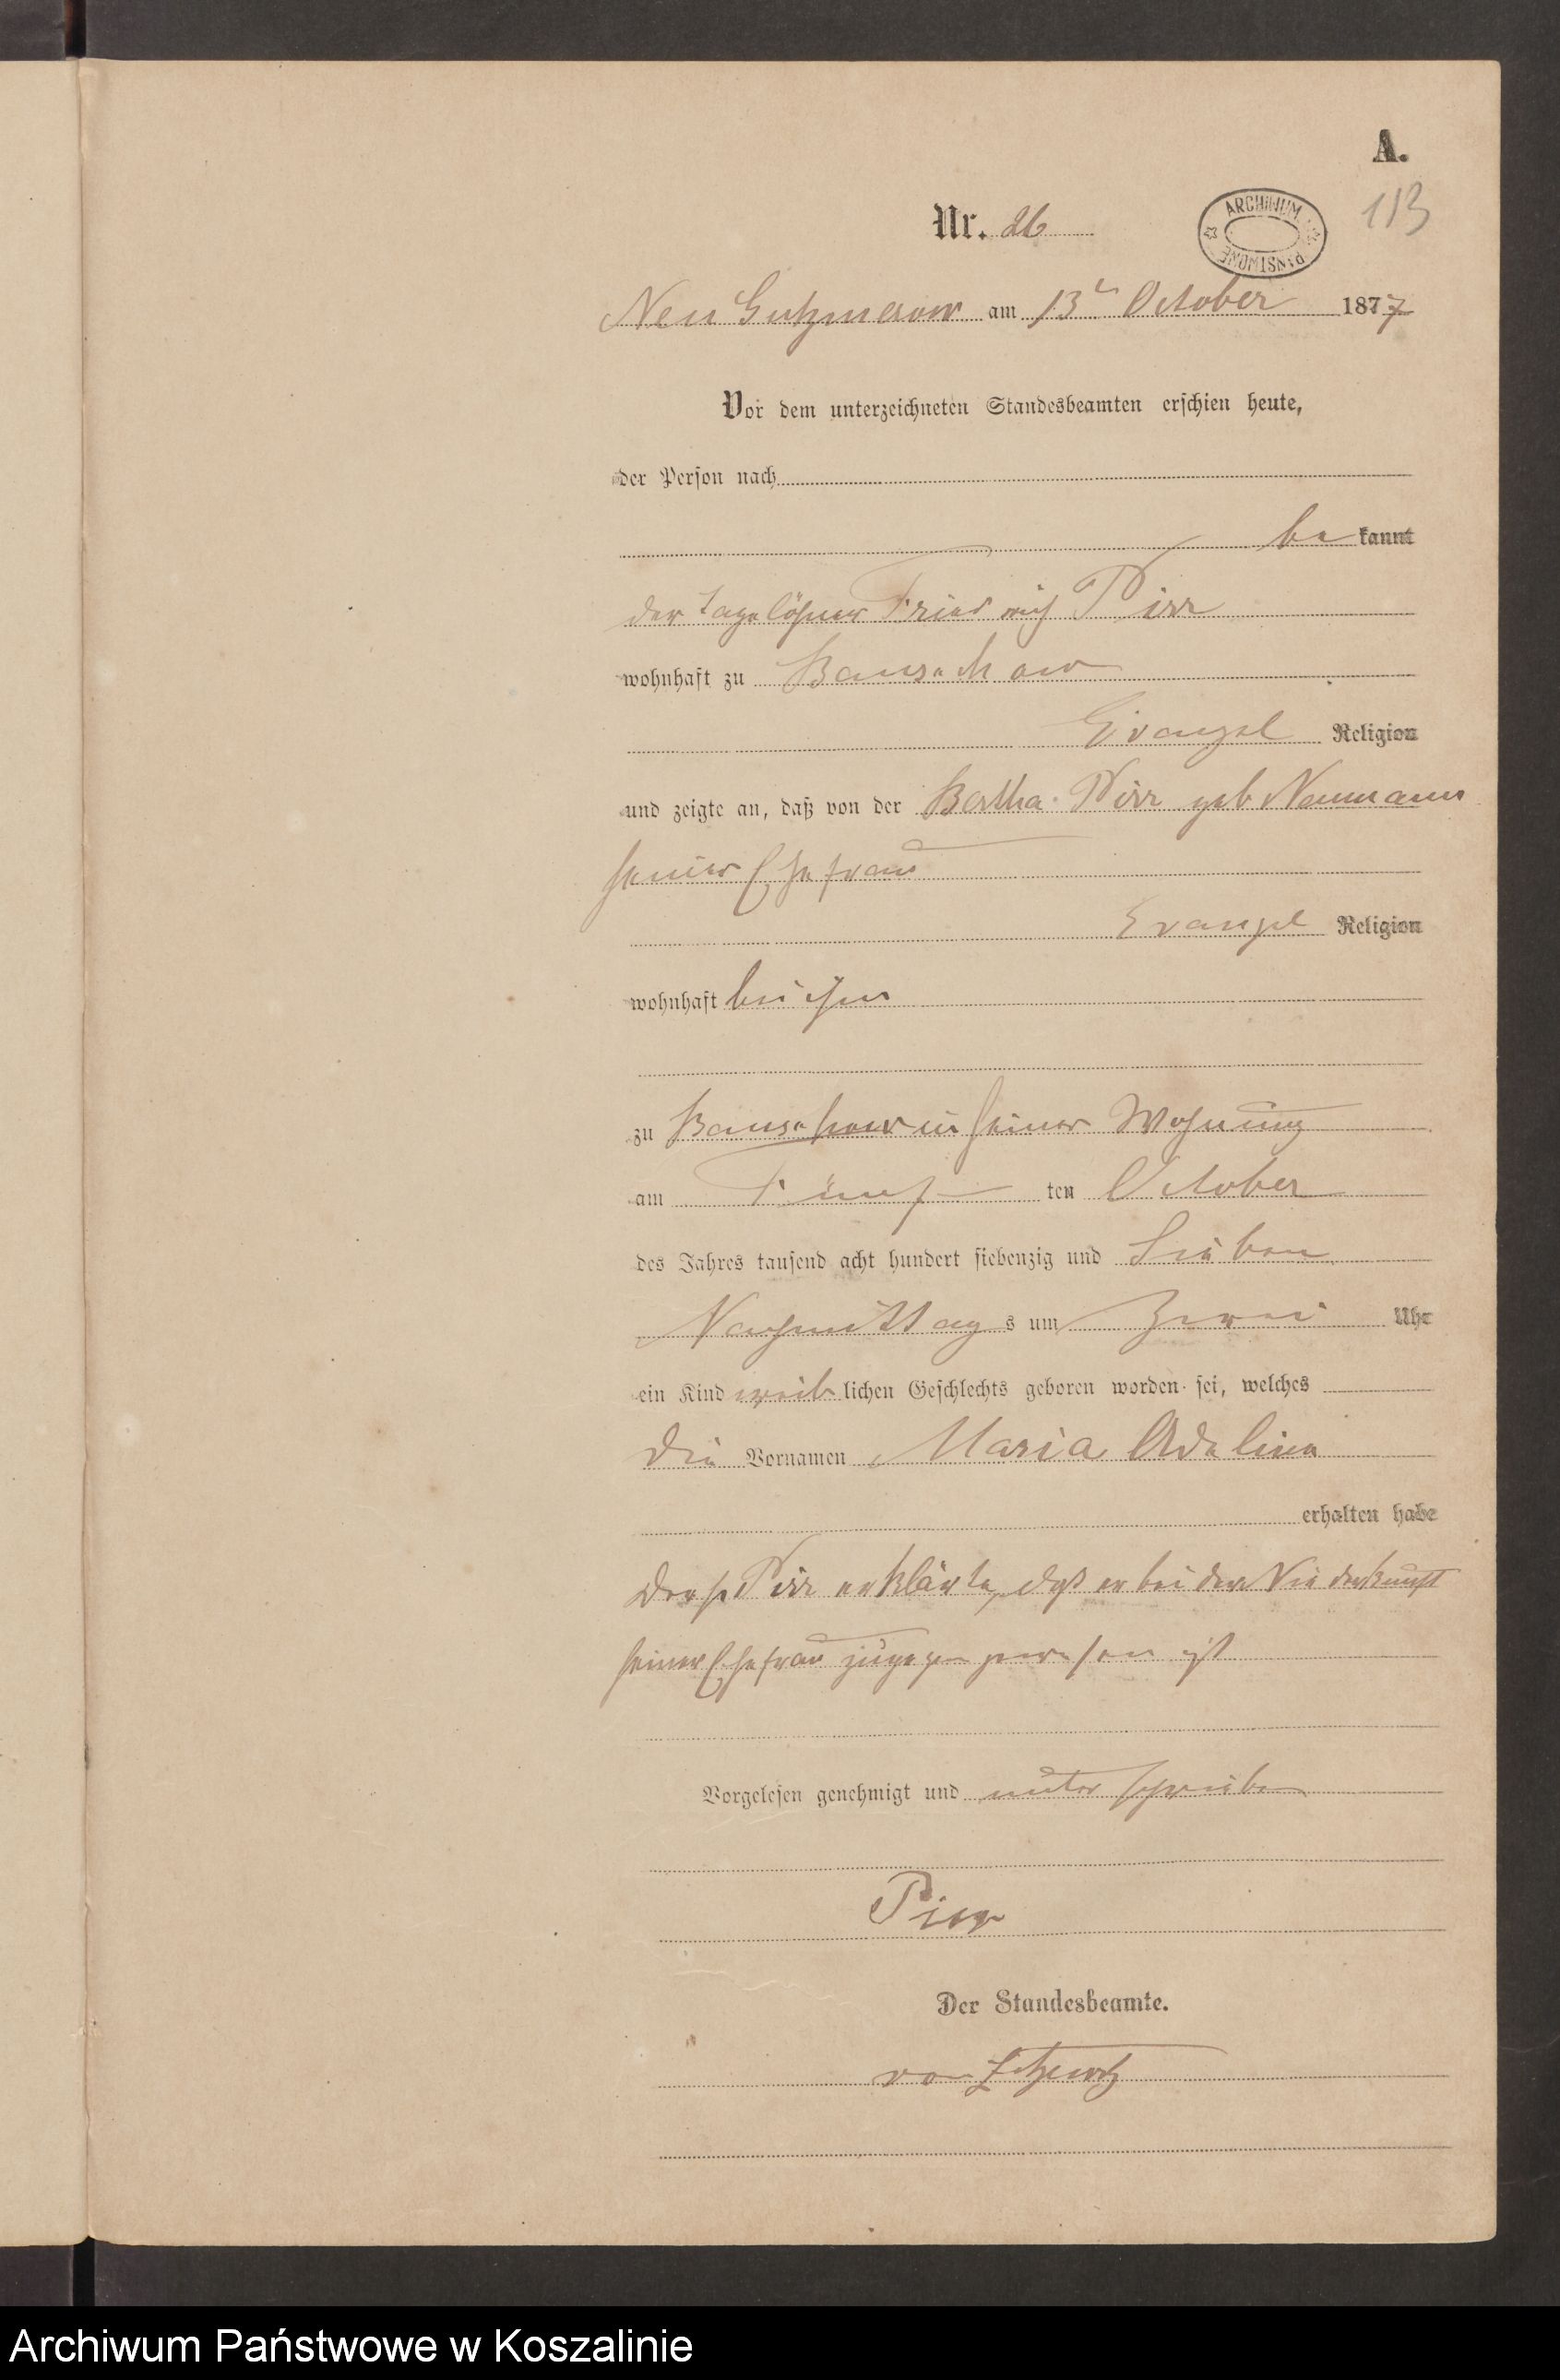 A.
113
ARCHIWUM
PAŃSTWOWE
Nr. 26
Neu Gutzmerow am 13t October 1877
Vor dem unterzeichneten Standesbeamten erschien heute,
der Person nach
be kannt
der Tagelöhner Friedrich Pirr
wohnhaft zu
Evangel Religion
und zeigte an, daß von der Bertha Pirr geb Naumann
seiner Ehefrau
Evangel Religion
wohnhaft bei ihm
zu in seiner Wohnung
am Fünf ten October
des Jahres tausend acht hundert siebenzig und Sieben
Nachmittag s um Zwei Uhr
ein Kind weib lichen Geschlechts geboren worden sei, welches
die Vornamen Maria Adeline
erhalten habe
Pirr erklärte, daß er bei der Niederkunft
seiner Ehefrau zugegen gewesen ist
Vorgelesen genehmigt und unterschrieben
Pirr
Der Standesbeamte.
von Zitzewitz
Archiwum Państwowe w Koszalinie